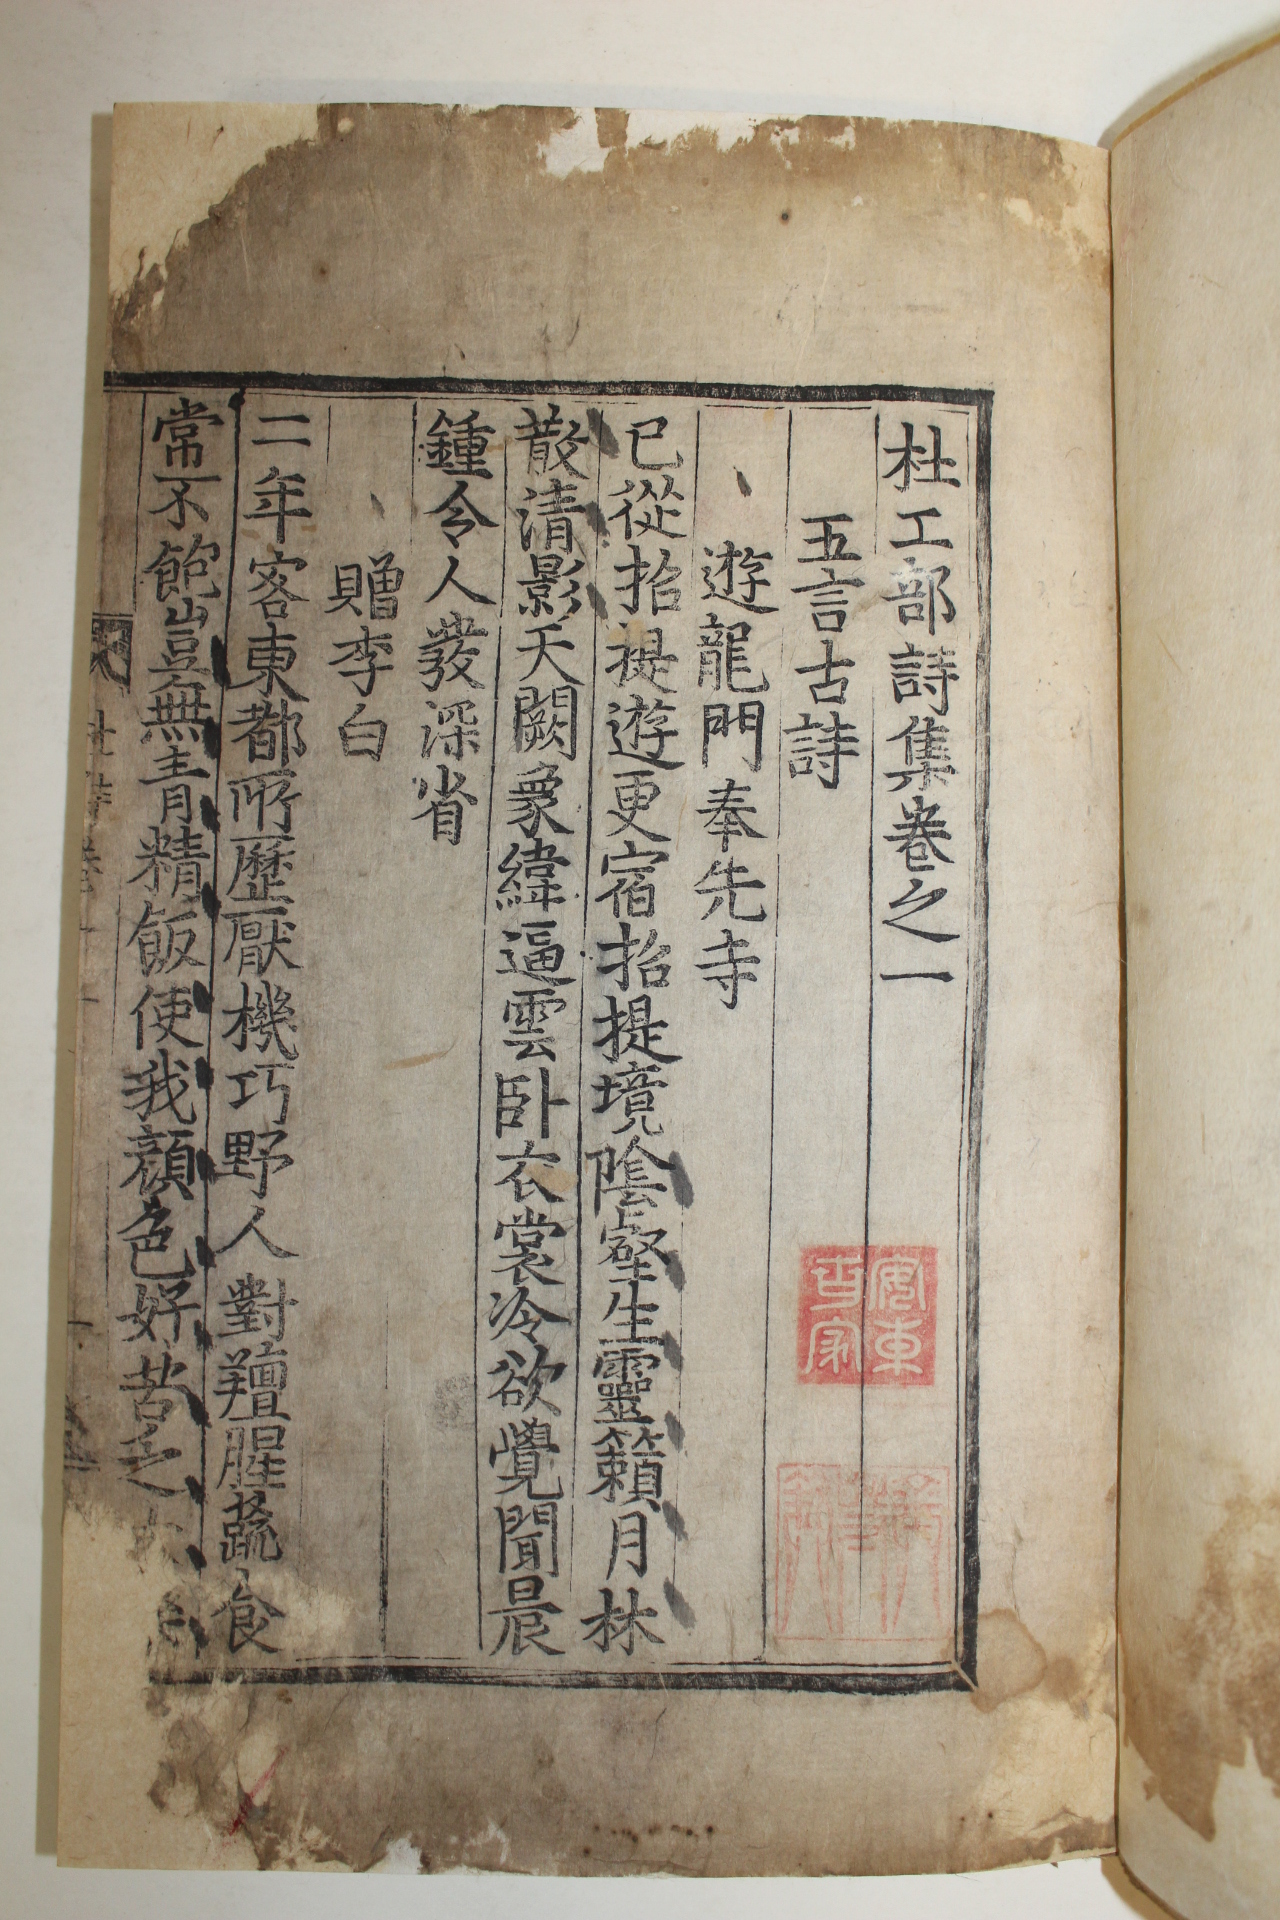 杜工部詩集卷之一
五言古詩
遊龍門奉先寺
已從招提遊更宿招提境陰壑生靈籟月林
散清影天闕象緯逼雲卧衣裳冷欲覺聞晨
鍾令人發深省
贈李白
二年客東都所歷厭機巧野人對羶腥蔬食
常不飽豈無青精飯使我顔色好苦乏